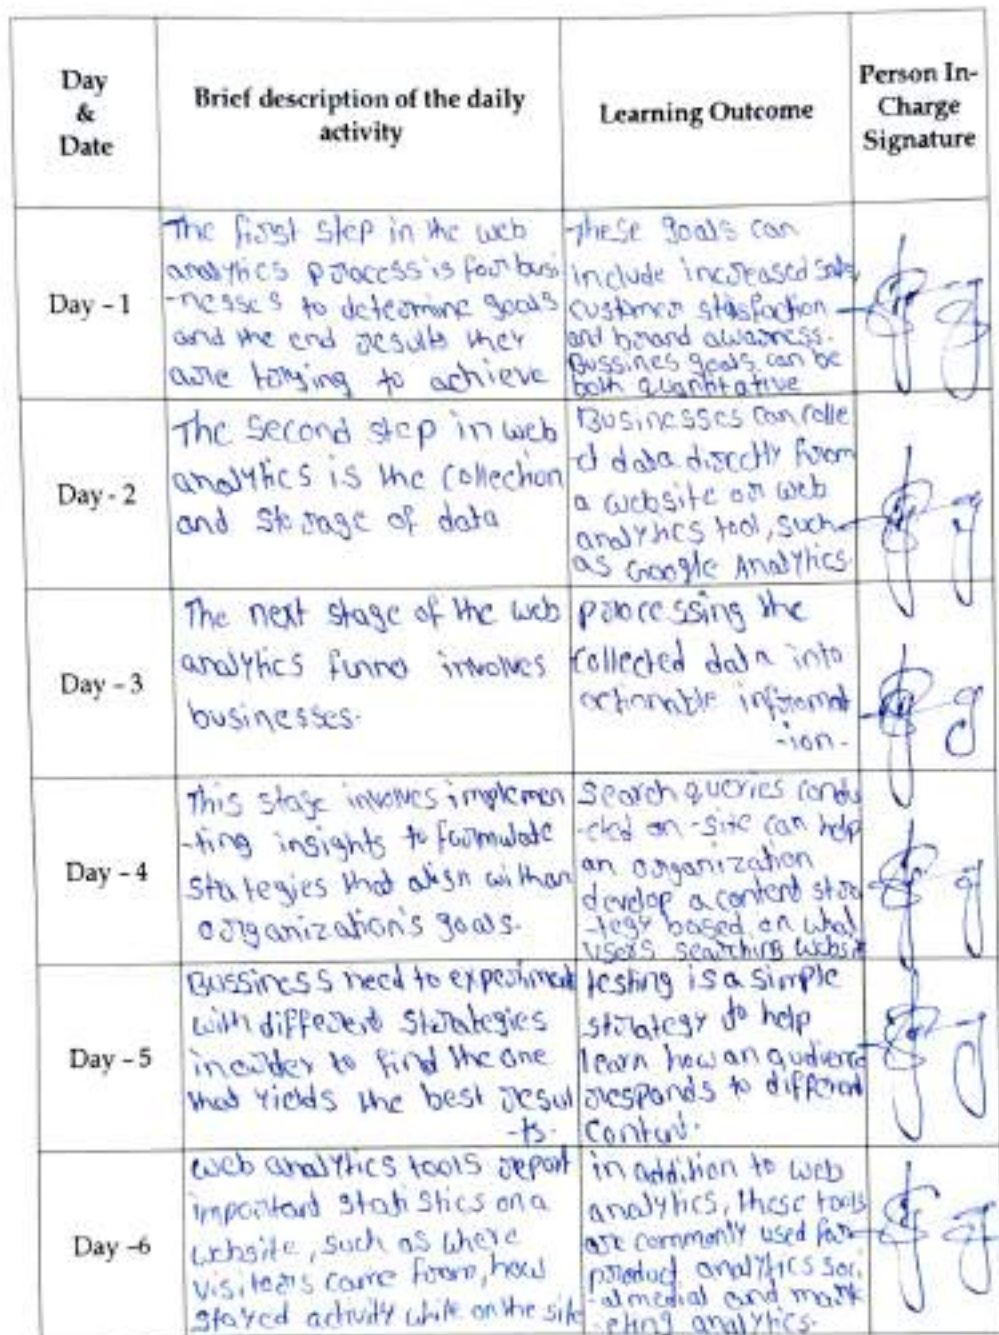 Day
&
Date
Brief description of the daily
activity
Learning Outcome
Person In-
Charge
Signature
Day - 1
The first step in the web
analytics process is for busi
-nesses to determine goals
and the end results they
are trying to achieve
these goals can
include increased sales
customer stasfaction
and brand awarness.
Bussines goals can be
both quantitative
Day - 2
The second step in web
analytics is the collection
and storage of data
Businesses can colle
-ct data directly from
a website or web
analytics tool, such
as Google Analytics.
Day - 3
The next stage of the web
analytics funnel involves
businesses.
processing the
collected data into
actionable informat
-ion.
Day - 4
This stage involves implemen
-ting insights to formulate
strategies that align with an
organization's goals.
Search queries condu
-cted on-site can help
an organization
develop a content stra
-tegy based on what
users searching website
Day - 5
Bussiness need to experiment
with different strategies
in order to find the one
that yields the best resul
-ts.
testing is a simple
strategy to help
learn how an audience
responds to different
content.
Day -6
web analytics tools report
important statistics on a
website, such as where
visiteors came from, how
stayed activity while on the site
in addition to web
analytics, these tools
are commonly used for
product analytics soci
-al medial and mark
-eting analytics.